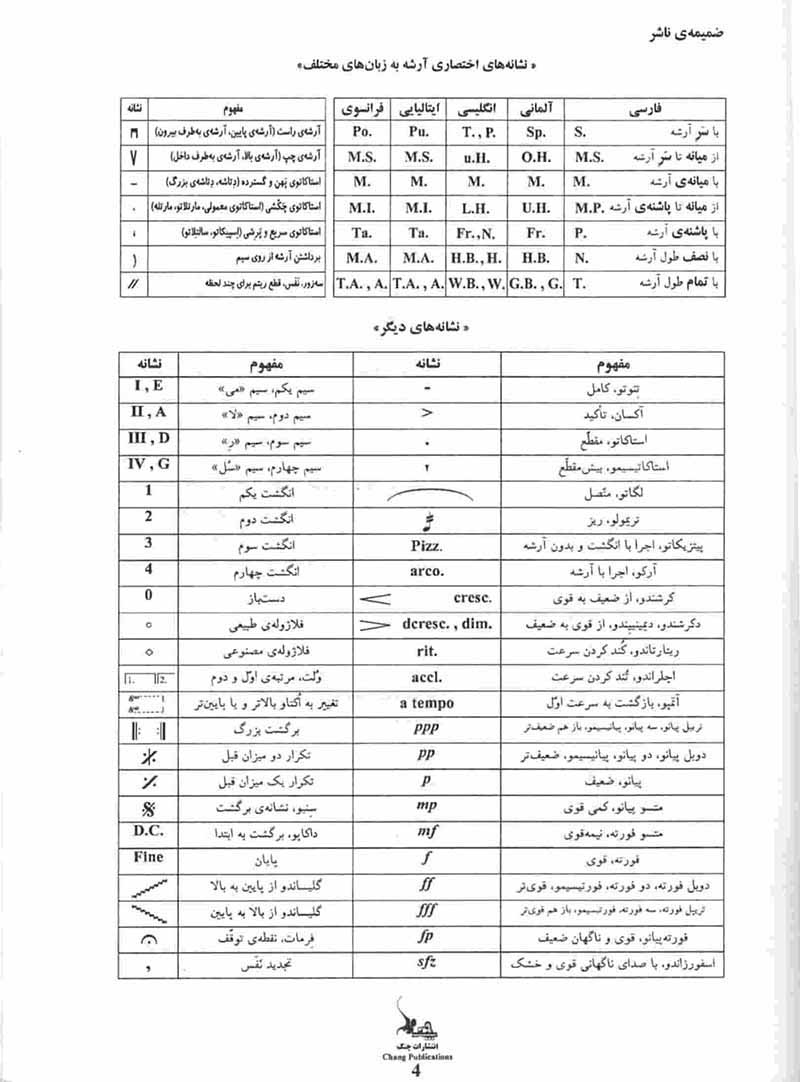 ضمیمه‌ی ناشر
« نشانه‌های اختصاری آرشه به زبان‌های مختلف»
فارسی آلمانی انگلیسی ایتالیایی فرانسوی
با سَر آرشه S. Sp. T. , P. Pu. Po.
از میانه تا سَر آرشه M.S. O.H. u.H. M.S. M.S.
با میانه‌ی آرشه M. M. M. M. M.
از میانه تا پاشنه‌ی آرشه M.P. U.H. L.H. M.I. M.I.
با پاشنه‌ی آرشه P. Fr. Fr.,N. Ta. Ta.
با نصف طول آرشه N. H.B. H.B.,H. M.A. M.A.
با تمام طول آرشه T. G.B. , G. W.B., W. T.A. , A. T.A. , A.
مفهوم نشانه
آرشه‌ی راست (آرشه‌ی پایین، آرشه‌ی به‌طرف بیرون)
آرشه‌ی چپ (آرشه‌ی بالا، آرشه‌ی به‌طرف داخل) V
استاکاتوی پَهن و گسترده (دِتاشه، دِتاشه‌ی بزرگ) –
استاکاتوی چَکُشی (استاکاتوی معمولی، مارتلاتو، مارتله) .
استاکاتوی سریع و پَرشی (اِسپیکاتو، سالتلاتو)
برداشتن آرشه از روی سیم )
سه‌زور، نَفَس، قطع ریتم برای چند لحظه //
« نشانه‌های دیگر»
مفهوم نشانه مفهوم نشانه
تِنوتو، کامل - سیم یکم، سیم «می» I , E
آکسان، تأکید > سیم دوم، سیم «لا» II , A
استاکاتو، مقطّع . سیم سوم، سیم «رِ» III , D
استاکاتیسیمو، بیش‌مقطّع سیم چهارم، سیم «سُل» IV , G
لگاتو، متّصل انگشت یکم 1
تریمولو، ریز انگشت دوم 2
پیتزیکاتو، اجرا با انگشت و بدون آرشه Pizz. انگشت سوم 3
آرکو، اجرا با آرشه arco. انگشت چهارم 4
کرشندو، از ضعیف به قوی cresc. دست‌باز 0
دکرشندو، دیمینیندو، از قوی به ضعیف dcresc. , dim. فلاژوله‌ی طبیعی
ریتارتاندو، کُند کردن سرعت rit. فلاژوله‌ی مصنوعی
اچلراندو، تُند کردن سرعت accl. وُلت، مرتبه‌ی اوّل و دوم 1. 2.
آتمپو، بازگشت به سرعت اوّل a tempo تغییر به اُکتاو بالاتر و یا پایین‌تر
تریپل پیانو، سه پیانو، پیانیسیمو، باز هم ضعیف‌تر ppp برگشت بزرگ
دوبل پیانو، دو پیانو، پیانیسیمو، ضعیف‌تر pp تکرار دو میزان قبل
پیانو، ضعیف p تکرار یک میزان قبل
متسو پیانو، کمی قوی mp سِنیو، نشانه‌ی برگشت
متسو فورته، نیمه‌قوی mf داکاپو، برگشت به ابتدا D.C.
فورته، قوی f پایان Fine
دوبل فورته، دو فورته، فورتیسیمو، قوی‌تر ff گلیساندو از پایین به بالا
تریپل فورته، سه فورته، فورتیسیمو، باز هم قوی‌تر fff گلیساندو از بالا به پایین
فورته‌پیانو، قوی و ناگهان ضعیف fp فِرمات، نقطه‌ی توقّف
اسفورزاندو، با صدای ناگهانی قوی و خشک sfz تجدید نَفَس ,
انتشارات چنگ
Chang Publications
4